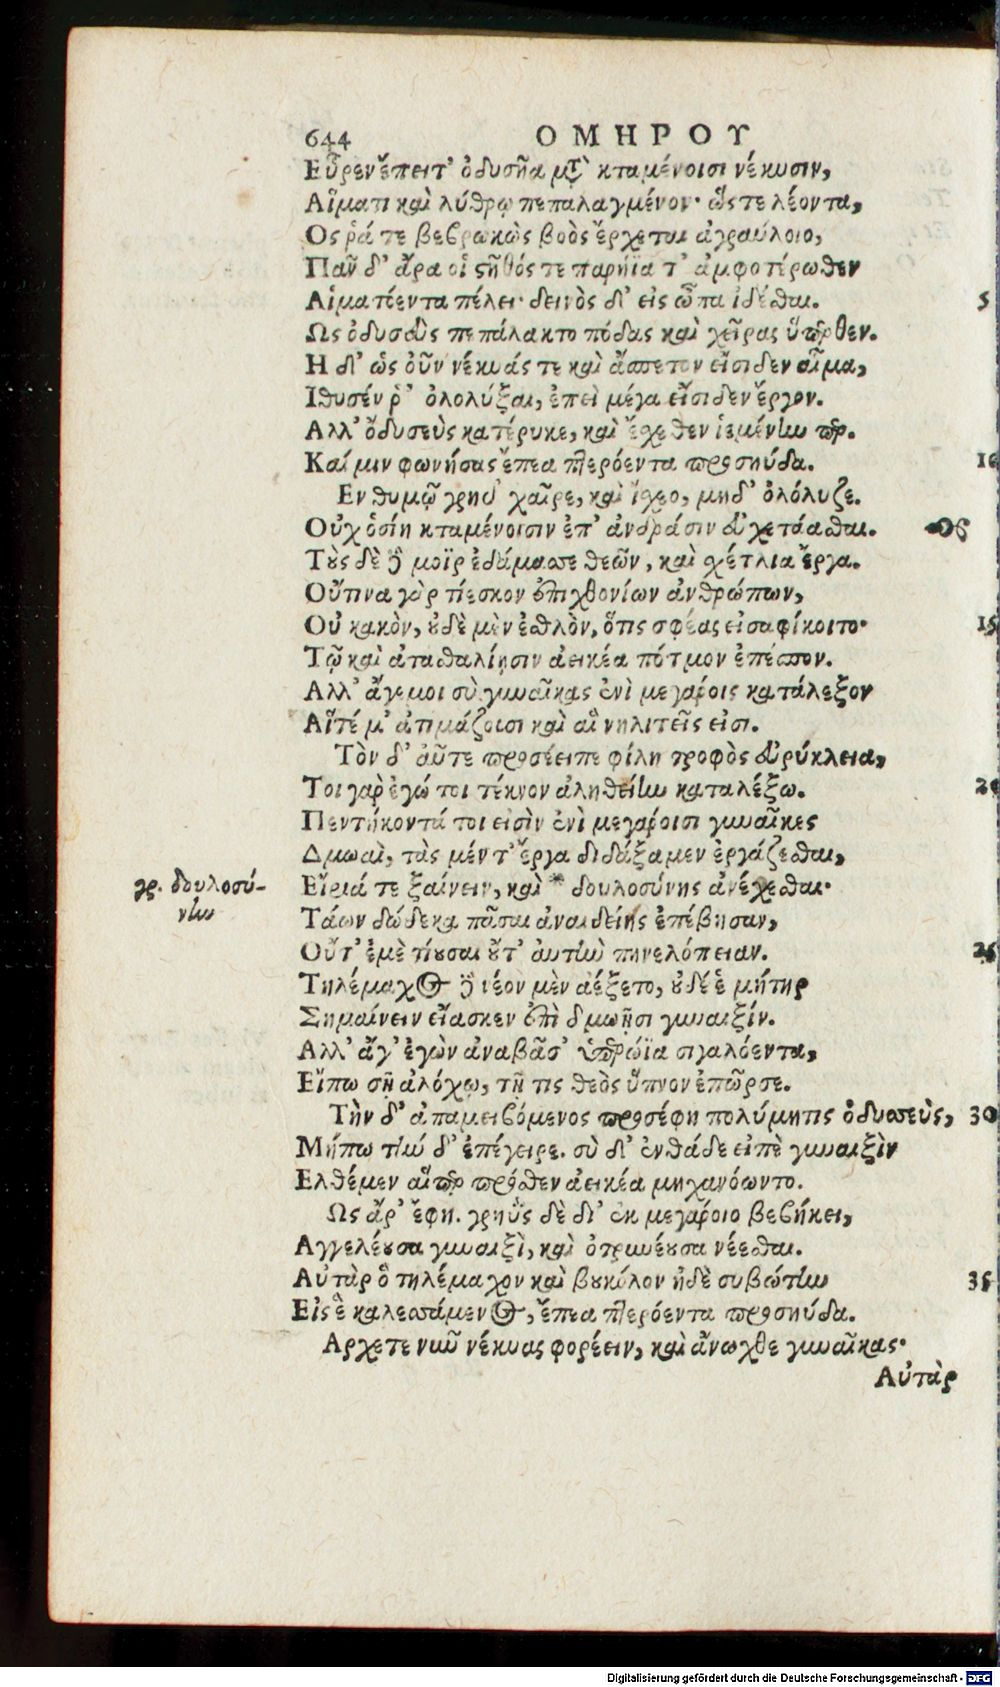 644 ΟΜΗΡΟΥ
Εὗρεν ἔπειτ' ὀδυσῆα μετὰ κταμένοισι νέκυσιν,
Αἵματι καὶ λύθρῳ πεπαλαγμένον· ὥς τε λέοντα,
Ος ῥά τε βεβρωκὼς βοὸς ἔρχεται ἀγραύλοιο,
Πᾶν δ' ἄρα οἱ στῆθός τε παρήϊα τ' ἀμφοτέρωθεν
Αἱματόεντα πέλει· δεινὸς δ' εἰς ὦπα ἰδέσθαι. 5
Ως ὀδυσεὺς πεπάλακτο πόδας καὶ χεῖρας ὕπερθεν.
Η δ' ὡς οὖν νέκυάς τε καὶ ἄσπετον εἴσιδεν αἷμα,
Ιθυσέν ῥ' ὀλολύξαι, ἐπεὶ μέγα εἴσιδεν ἔργον.
Αλλ' ὄδυσεὺς κατέρυκε, καὶ ἔσχεθεν ἱεμένην περ.
Καί μιν φωνήσας ἔπεα πτερόεντα προσηύδα. 10
Εν θυμῷ γρηῦ χαῖρε, καὶ ἴσχεο, μηδ' ὀλόλυζε.
Οὐχ ὁσίη κταμένοισιν ἐπ' ἀνδράσιν εὐχετάασθαι.
Τοὺς δὲ δὲ μοῖρ ἐδάμασσε θεῶν, καὶ σχέτλια ἔργα.
Οὔτινα γὰρ τίεσκον ἐπιχθονίων ἀνθρώπων,
Οὐ κακὸν, οὐδὲ μὲν ἐσθλὸν, ὅτις σφέας εἰσαφίκοιτο· 15
Τῷ καὶ ἀτασθαλίῃσιν ἀεικέα πότμον ἐπέσπον.
Αλλ' ἄγε μοι σὺ γυναῖκας ἐνὶ μεγάροις κατάλεξον
Αἵτέ μ' ἀτιμάζουσι καὶ αἳ νηλιτεῖς εἰσι.
Τὸν δ' αὖτε προσέειπε φίλη τροφὸς εὐρύκλεια,
Τοι γαρ ἐγώ τοι τέκνον ἀληθείην καταλέξω. 20
Πεντήκοντά τοι εἰσὶν ἐνὶ μεγάροισι γυναῖκες
Δμωαὶ, τὰς μέν τ' ἔργα διδάξαμεν ἐργάζεσθαι,
γρ. δουλοσύ-
νην
Εἴριά τε ξαίνειν, καὶ * δουλοσύνης ἀνέχεσθαι·
Τάων δώδεκα πᾶσαι ἀναιδείης ἐπέβησαν,
Οὔτ' ἐμὲ τίουσαι οὔτ' αὐτὴν πηνελόπειαν. 25
Τηλέμαχος δὲ νέον μὲν ἀέξετο, οὐδέ ἑ μήτηρ
Σημαίνειν εἴασκεν ἐπὶ δμωῇσι γυναιξίν.
Αλλ' ἄγ' ἐγὼν ἀναβᾶσ' ὑπερώϊα σιγαλόεντα,
Εἴπω σῇ ἀλόχῳ, τῇ τις θεὸς ὕπνον ἐπῶρσε.
Τὴν δ' ἀπαμειβόμενος προσέφη πολύμητις ὀδυσσεὺς, 30
Μήπω τήν δ' ἐπέγειρε. σὺ δ' ἐνθάδε εἰπὲ γυναιξὶν
Ελθέμεν αἵπερ πρόσθεν ἀεικέα μηχανόωντο.
Ως ἄρ' ἔφη. γρηῢς δὲ δι' ἐκ μεγάροιο βεβήκει,
Αγγελέουσα γυναιξὶ, καὶ ὀτρυνέουσα νέεσθαι.
Αὐτὰρ ὃ τηλέμαχον καὶ βουκόλον ἠδὲ συβώτην 35
Εἰς ἓ καλεσσάμενος, ἔπεα πτερόεντα προσηύδα.
Αρχετε νῦν νέκυας φορέειν, καὶ ἄνωχθε γυναῖκας·
Αὐτὰρ
Digitalisierung gefördert durch die Deutsche Forschungsgemeinschaft - DFG